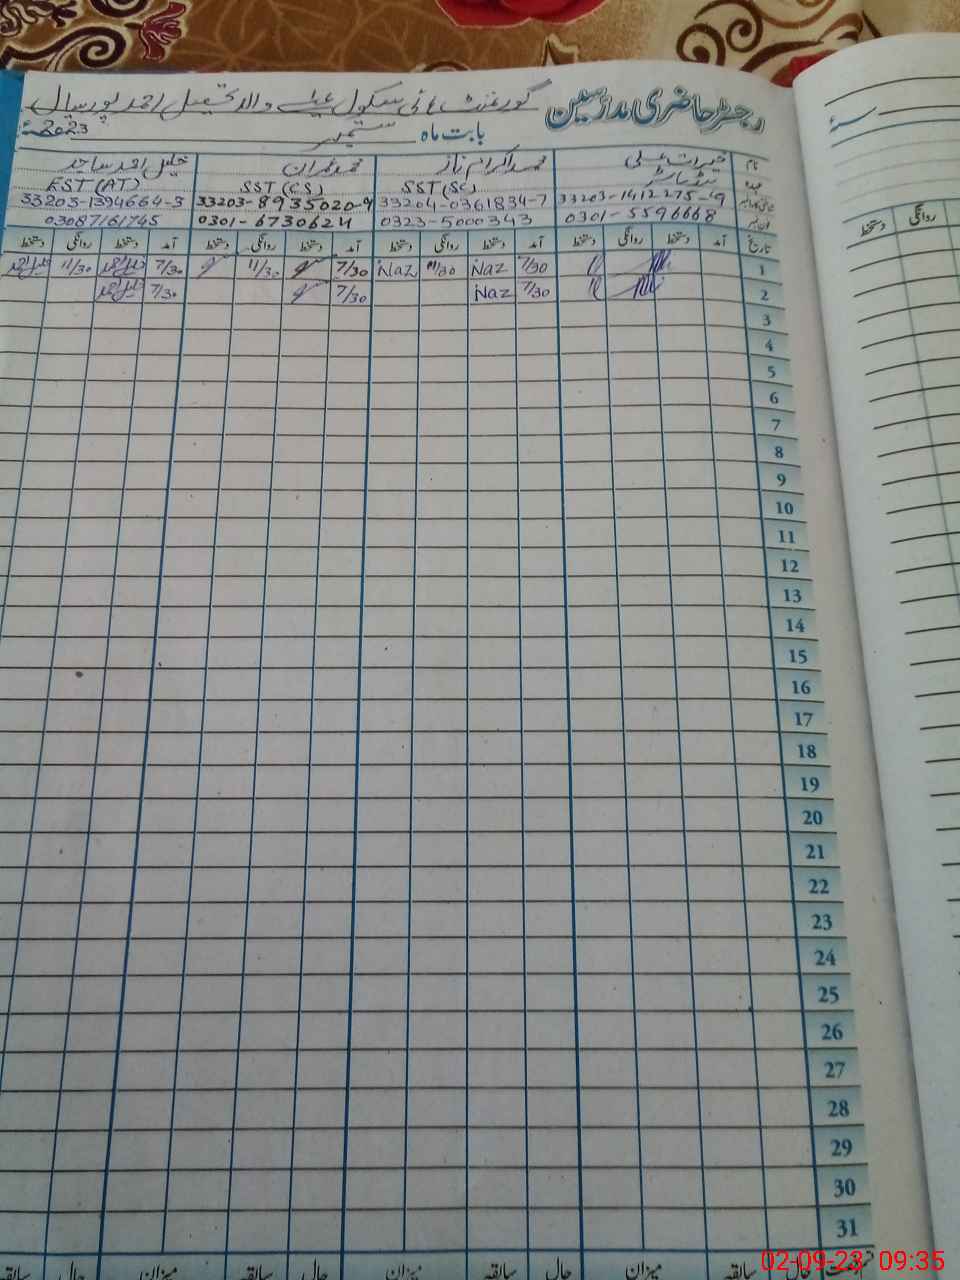 رجسٹر حاضری مدرسین گورنمنٹ ہائی سکول والہ تحصیل احمد پور سیال
بابت ماہ ستمبر 2023ء
نام خیرات علی محمد اکرام ناز محمد عمران خلیل احمد ساجد
عہدہ ہیڈ ماسٹر SST (SC) SST (CS) EST (AT)
33203-1412275-9 33204-0361834-7 33203-8935020-9 33203-1394664-3
0301-5596668 0323-5000343 0301-6730624 03087161745
تاریخ آمد دستخط روانگی دستخط آمد دستخط روانگی دستخط آمد دستخط روانگی دستخط آمد دستخط روانگی دستخط
1 7/30 Naz 11/30 Naz 7/30 11/30 7/30 11/30
2 7/30 Naz 7/30 7/30
3
4
5
6
7
8
9
10
11
12
13
14
15
16
17
18
19
20
21
22
23
24
25
26
27
28
29
30
31
رخصت حال سابقہ میزان حال سابقہ میزان حال سابقہ میزان حال سابقہ
روانگی دستخط
02-09-23 09:35